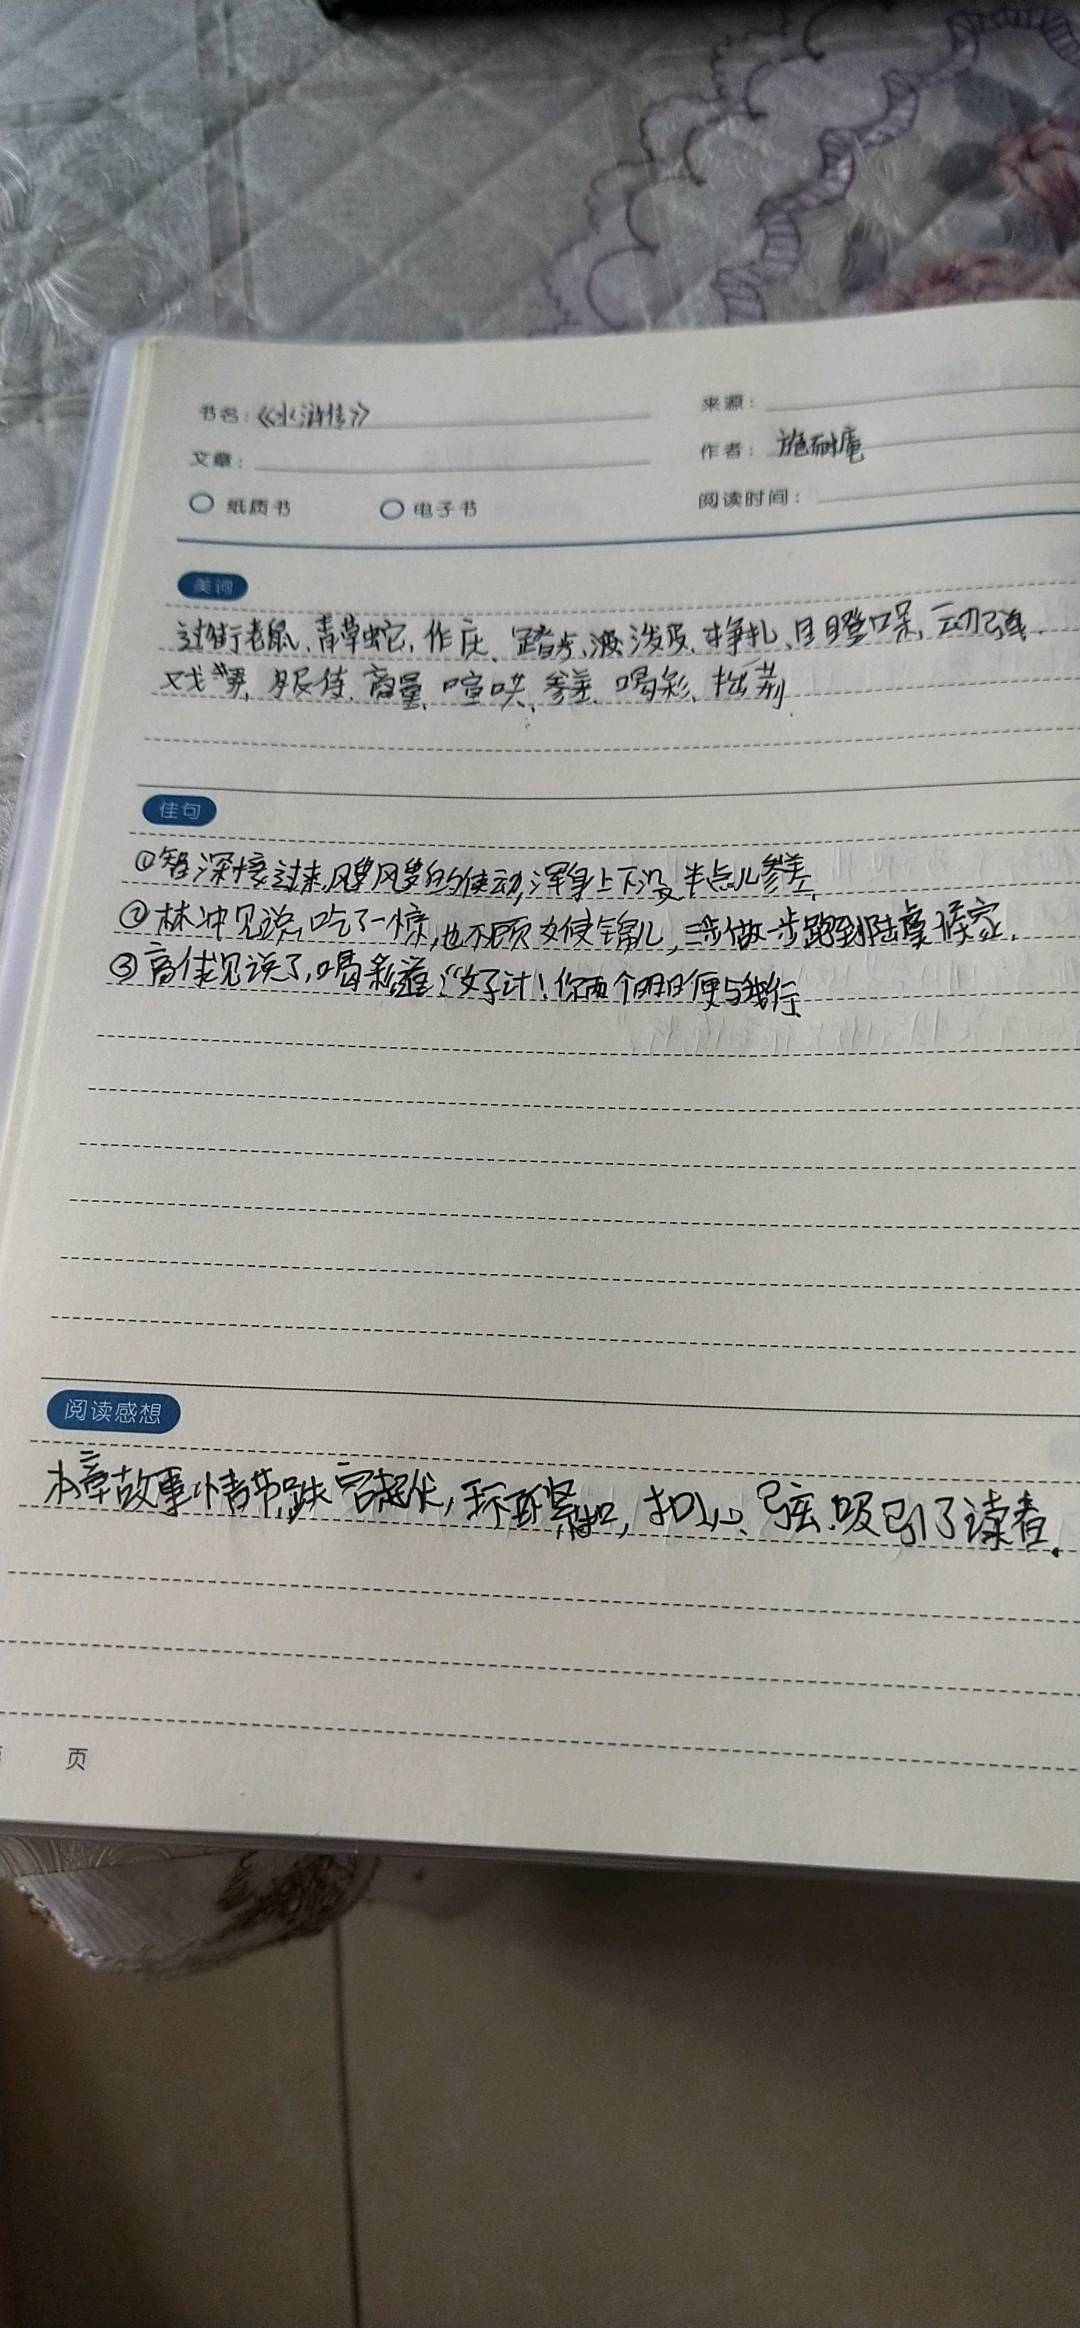 书名：《水浒传》
来源：
文章：
作者：施耐庵
纸质书 电子书
阅读时间：
美词
过街老鼠、青草蛇、作庄、踏步、泼泼皮、挣扎、目瞪口呆、
服侍、商量、喧哄、参差、喝彩、拙荆
佳句
①智深接过来，飕飕的使动，浑身上下没半点儿参差，
②林冲见说，吃了一惊，也不顾女使锦儿，三步做一步跑到陆虞候家.
③高俅见说了，喝彩道："好计！你两个明日便与我行
阅读感想
本章故事情节跌宕起伏，环环紧扣，扣心弦.吸引了读者.
页